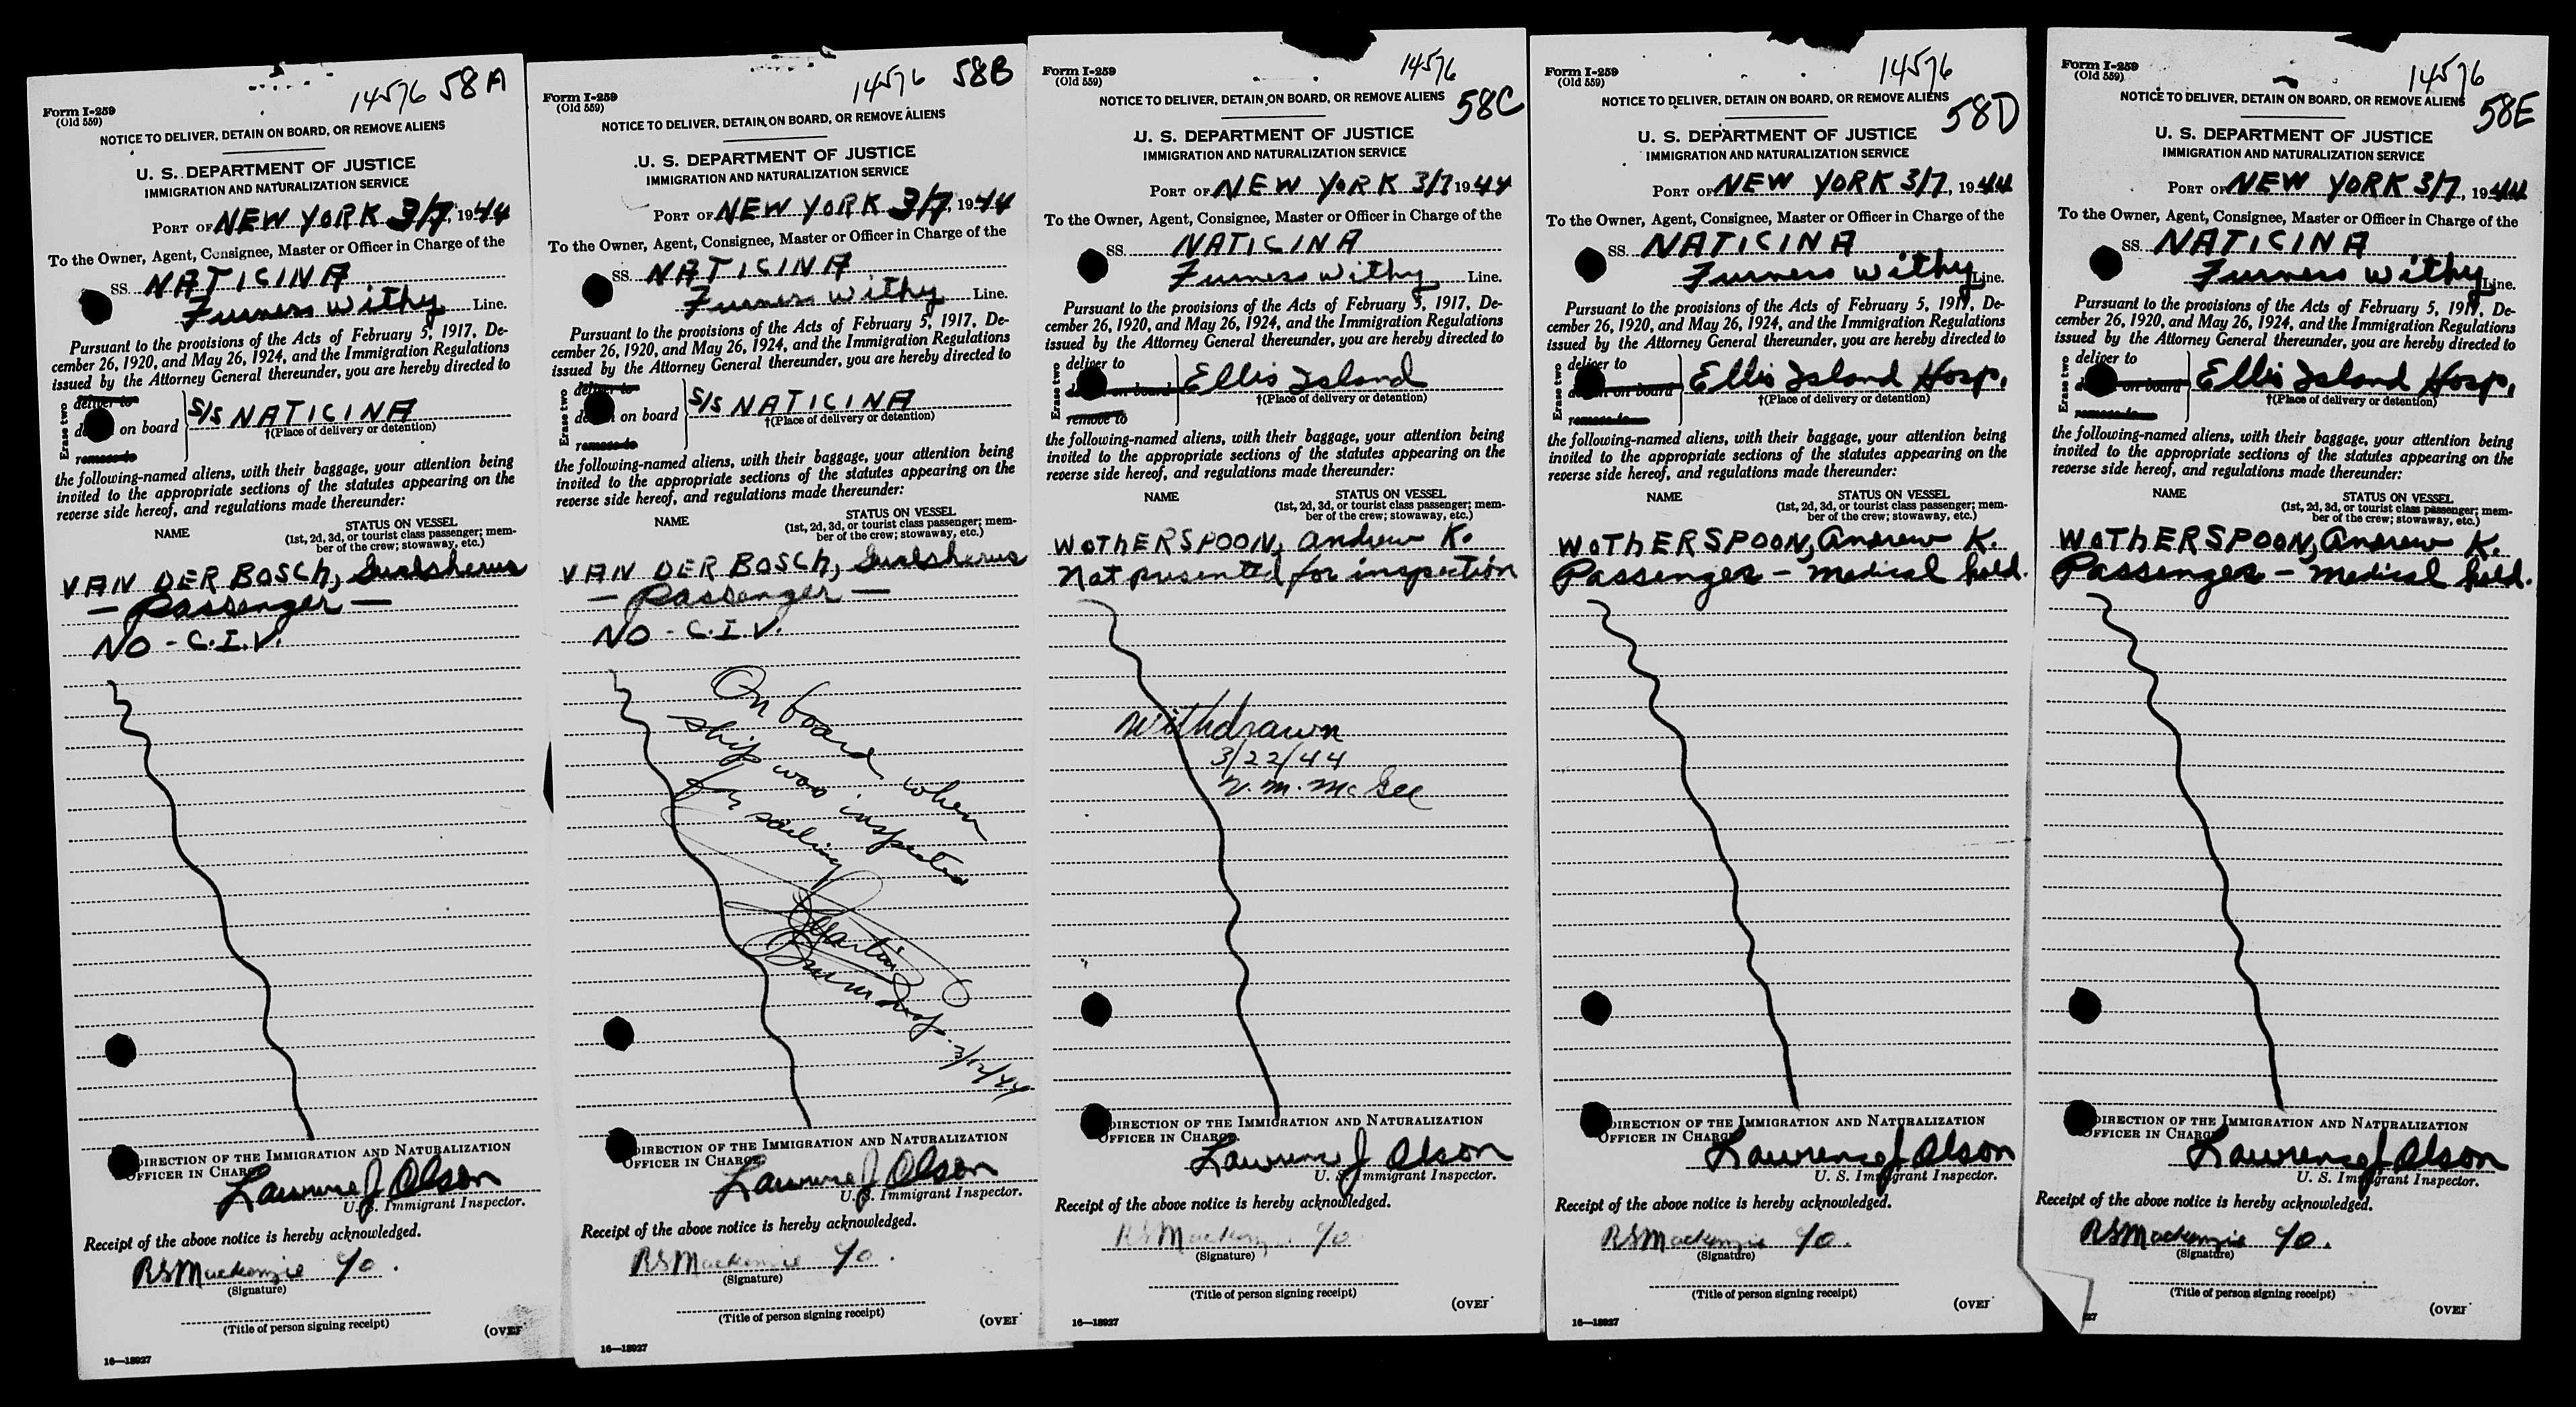 14576 58A
Form I-259
(Old 559)
NOTICE TO DELIVER, DETAIN ON BOARD, OR REMOVE ALIENS
U. S. DEPARTMENT OF JUSTICE
IMMIGRATION AND NATURALIZATION SERVICE
PORT OF NEW YORK 3/7, 1944
To the Owner, Agent, Consignee, Master or Officer in Charge of the
SS. NATICINA
Furness Withy Line.
Pursuant to the provisions of the Acts of February 5, 1917, De-
cember 26, 1920, and May 26, 1924, and the Immigration Regulations
issued by the Attorney General thereunder, you are hereby directed to
Erase two
deliver to
on board S/S NATICINA
†(Place of delivery or detention)
remove to
the following-named aliens, with their baggage, your attention being
invited to the appropriate sections of the statutes appearing on the
reverse side hereof, and regulations made thereunder:
NAME STATUS ON VESSEL
(1st, 2d, 3d, or tourist class passenger; mem-
ber of the crew; stowaway, etc.)
VAN DER BOSCH,
— Passenger —
NO - C.I.V.
DIRECTION OF THE IMMIGRATION AND NATURALIZATION
OFFICER IN CHARGE
Lawrence J Olson
U. S. Immigrant Inspector.
Receipt of the above notice is hereby acknowledged.
RSMackenzie
(Signature)
(Title of person signing receipt)
(OVER
16—18927
14576 58B
Form I-259
(Old 559)
NOTICE TO DELIVER, DETAIN ON BOARD, OR REMOVE ALIENS
U. S. DEPARTMENT OF JUSTICE
IMMIGRATION AND NATURALIZATION SERVICE
PORT OF NEW YORK 3/7, 1944
To the Owner, Agent, Consignee, Master or Officer in Charge of the
SS. NATICINA
Furness Withy Line.
Pursuant to the provisions of the Acts of February 5, 1917, De-
cember 26, 1920, and May 26, 1924, and the Immigration Regulations
issued by the Attorney General thereunder, you are hereby directed to
Erase two
deliver to
on board S/S NATICINA
†(Place of delivery or detention)
remove to
the following-named aliens, with their baggage, your attention being
invited to the appropriate sections of the statutes appearing on the
reverse side hereof, and regulations made thereunder:
NAME STATUS ON VESSEL
(1st, 2d, 3d, or tourist class passenger; mem-
ber of the crew; stowaway, etc.)
VAN DER BOSCH,
— Passenger —
NO - C.I.V.
On board when
ship was inspected
for sailing
Martin
3/12/44
DIRECTION OF THE IMMIGRATION AND NATURALIZATION
OFFICER IN CHARGE
Lawrence J Olson
U. S. Immigrant Inspector.
Receipt of the above notice is hereby acknowledged.
RSMackenzie
(Signature)
(Title of person signing receipt)
(OVER
16—18927
14576
58C
Form I-259
(Old 559)
NOTICE TO DELIVER, DETAIN ON BOARD, OR REMOVE ALIENS
U. S. DEPARTMENT OF JUSTICE
IMMIGRATION AND NATURALIZATION SERVICE
PORT OF NEW YORK 3/7 1944
To the Owner, Agent, Consignee, Master or Officer in Charge of the
SS. NATICINA
Furness Withy Line.
Pursuant to the provisions of the Acts of February 5, 1917, De-
cember 26, 1920, and May 26, 1924, and the Immigration Regulations
issued by the Attorney General thereunder, you are hereby directed to
Erase two
deliver to
on board Ellis Island
†(Place of delivery or detention)
remove to
the following-named aliens, with their baggage, your attention being
invited to the appropriate sections of the statutes appearing on the
reverse side hereof, and regulations made thereunder:
NAME STATUS ON VESSEL
(1st, 2d, 3d, or tourist class passenger; mem-
ber of the crew; stowaway, etc.)
WOTHERSPOON, Andrew K.
Not presented for inspection
Withdrawn
3/22/44
V. M. McGee
DIRECTION OF THE IMMIGRATION AND NATURALIZATION
OFFICER IN CHARGE.
Lawrence J Olson
U. S. Immigrant Inspector.
Receipt of the above notice is hereby acknowledged.
RSMackenzie
(Signature)
(Title of person signing receipt)
(OVER
16—18927
14576
58D
Form I-259
(Old 559)
NOTICE TO DELIVER, DETAIN ON BOARD, OR REMOVE ALIENS
U. S. DEPARTMENT OF JUSTICE
IMMIGRATION AND NATURALIZATION SERVICE
PORT OF NEW YORK 3/7, 1944
To the Owner, Agent, Consignee, Master or Officer in Charge of the
SS. NATICINA
Furness Withy Line.
Pursuant to the provisions of the Acts of February 5, 1917, De-
cember 26, 1920, and May 26, 1924, and the Immigration Regulations
issued by the Attorney General thereunder, you are hereby directed to
Erase two
deliver to
on board Ellis Island Hosp.
†(Place of delivery or detention)
remove to
the following-named aliens, with their baggage, your attention being
invited to the appropriate sections of the statutes appearing on the
reverse side hereof, and regulations made thereunder:
NAME STATUS ON VESSEL
(1st, 2d, 3d, or tourist class passenger; mem-
ber of the crew; stowaway, etc.)
WOTHERSPOON, Andrew K.
Passenger - medical hold.
DIRECTION OF THE IMMIGRATION AND NATURALIZATION
OFFICER IN CHARGE
Lawrence J Olson
U. S. Immigrant Inspector.
Receipt of the above notice is hereby acknowledged.
RSMackenzie
(Signature)
(Title of person signing receipt)
(OVER
16—18927
14576
58E
Form I-259
(Old 559)
NOTICE TO DELIVER, DETAIN ON BOARD, OR REMOVE ALIENS
U. S. DEPARTMENT OF JUSTICE
IMMIGRATION AND NATURALIZATION SERVICE
PORT OF NEW YORK 3/7, 1944
To the Owner, Agent, Consignee, Master or Officer in Charge of the
SS. NATICINA
Furness Withy Line.
Pursuant to the provisions of the Acts of February 5, 1917, De-
cember 26, 1920, and May 26, 1924, and the Immigration Regulations
issued by the Attorney General thereunder, you are hereby directed to
Erase two
deliver to
on board Ellis Island Hosp.
†(Place of delivery or detention)
remove to
the following-named aliens, with their baggage, your attention being
invited to the appropriate sections of the statutes appearing on the
reverse side hereof, and regulations made thereunder:
NAME STATUS ON VESSEL
(1st, 2d, 3d, or tourist class passenger; mem-
ber of the crew; stowaway, etc.)
WOTHERSPOON, Andrew K.
Passenger - medical hold.
DIRECTION OF THE IMMIGRATION AND NATURALIZATION
OFFICER IN CHARGE
Lawrence J Olson
U. S. Immigrant Inspector.
Receipt of the above notice is hereby acknowledged.
RSMackenzie
(Signature)
(Title of person signing receipt)
(OVER
27